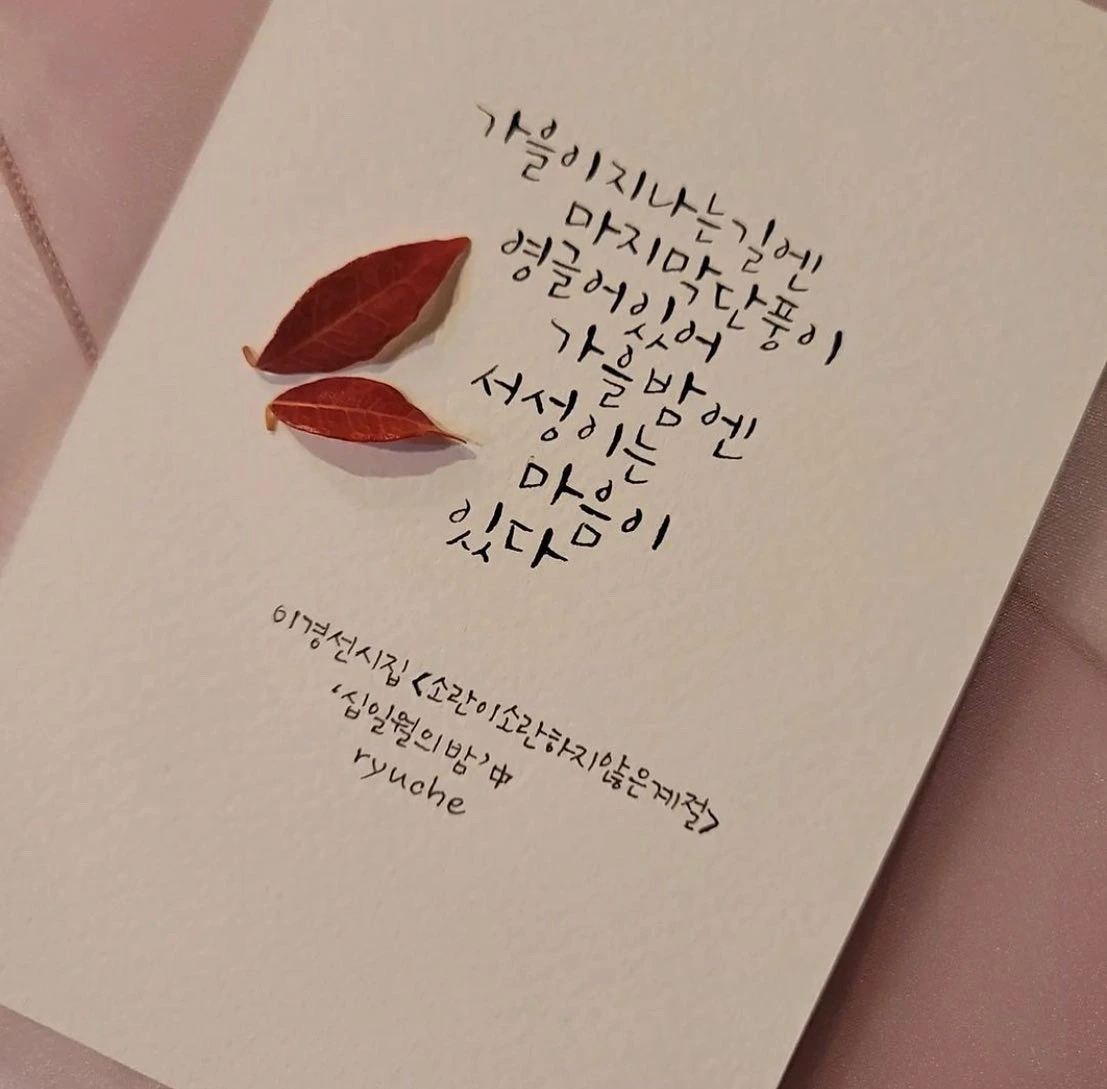 가을이지나는길엔
마지막단풍이
영글어있어
가을밤엔
서성이는
마음이
있다
이경선시집<소란이소란하지않은계절>
‘십일월의밤’中
ryuche